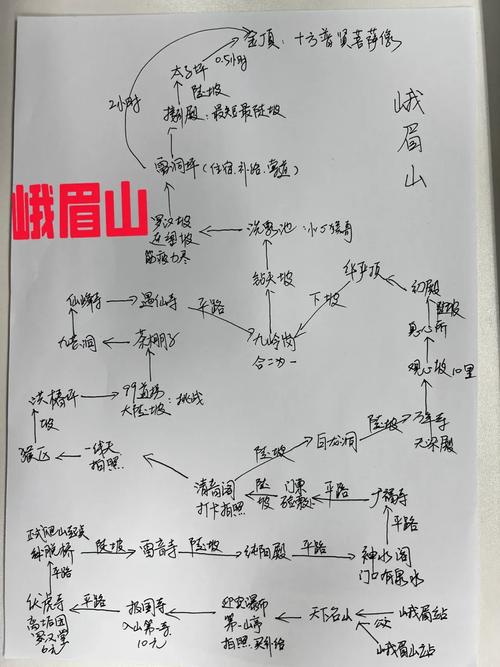 金顶：十方普贤菩萨像
0.5小时
太子坪
陡坡
2小时
接引殿：最短最陡坡
峨眉山
雷洞坪（住宿.补给.索道）
峨眉山
罗汉坡
连绵坡
筋疲力尽
洗象池：小心猴子
钻天坡
华严顶
初殿
陡坡
息心所
下坡
仙峰寺
遇仙寺
平路
九老洞
茶棚子
九岭岗
合二为一
观心坡10里
洪椿坪
99道拐
大陡坡：挑战
坡
猴区
一线天
拍照
陡坡
白龙洞
陡坡
万年寺
无梁殿
清音阁
打卡拍照
陡坡
门票
平路
广福寺
平路
正式爬山起点
解脱桥
陡坡
雷音寺
陡坡
纯阳殿
平路
神水阁
门口有泉水
平路
伏虎寺
离垢园
罗汉堂
6元
平路
报国寺
入山第一寺
10元
迎宾瀑布
第一山亭
拍照.买补给
天下名山
公交
峨眉站
峨眉山站